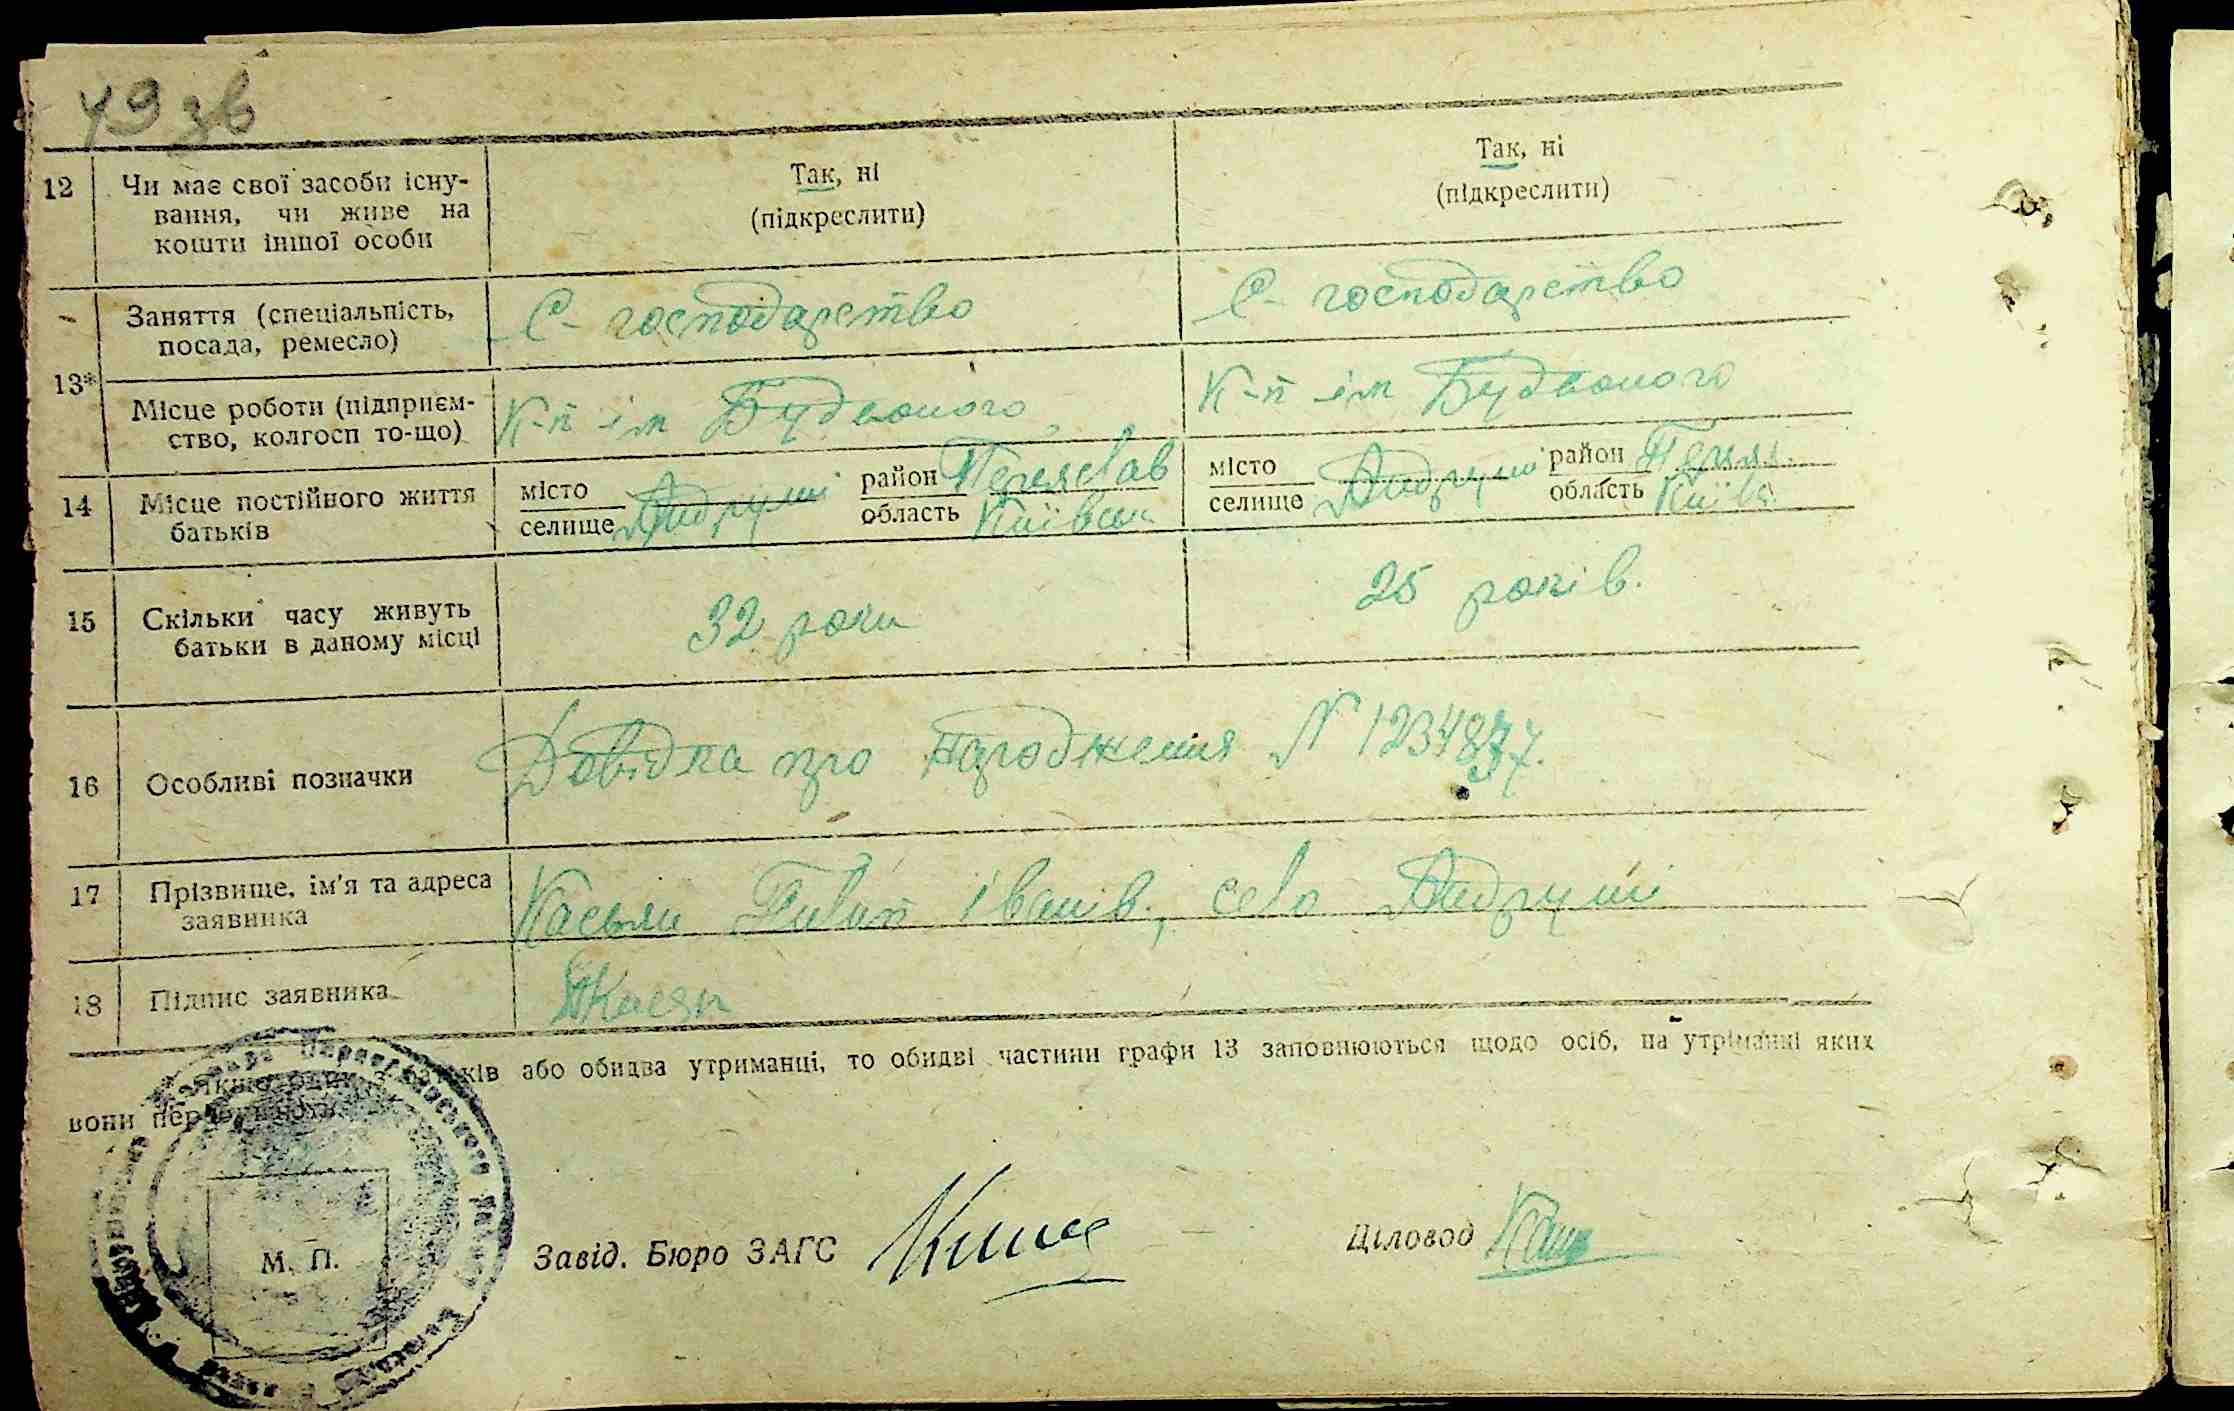 49 зв
12 Чи має свої засоби існу-
вання, чи живе на
кошти іншої особи
Так, ні
(підкреслити)
Так, ні
(підкреслити)
13*
Заняття (спеціальність,
посада, ремесло)
С-господарство
С-господарство
Місце роботи (підприєм-
ство, колгосп то-що)
К-п ім Будьоного
К-п ім Будьоного
14 Місце постійного життя
батьків
місто
селище Андруші
район Переяслав
область Київськ
місто
селище Андруші
район Переял.
область Київ.
15 Скільки часу живуть
батьки в даному місці
32 роки
25 років.
16 Особливі позначки
Довідка про народження N
17 Прізвище, ім'я та адреса
заявника
Касьян Пилип Іванів., село Андруші
18 Підпис заявника
Касян
або обидва утриманці, то обидві частини графи 13 заповнюються щодо осіб, на утриманні яких
вони
М. П.
Завід. Бюро ЗАГС
Діловод